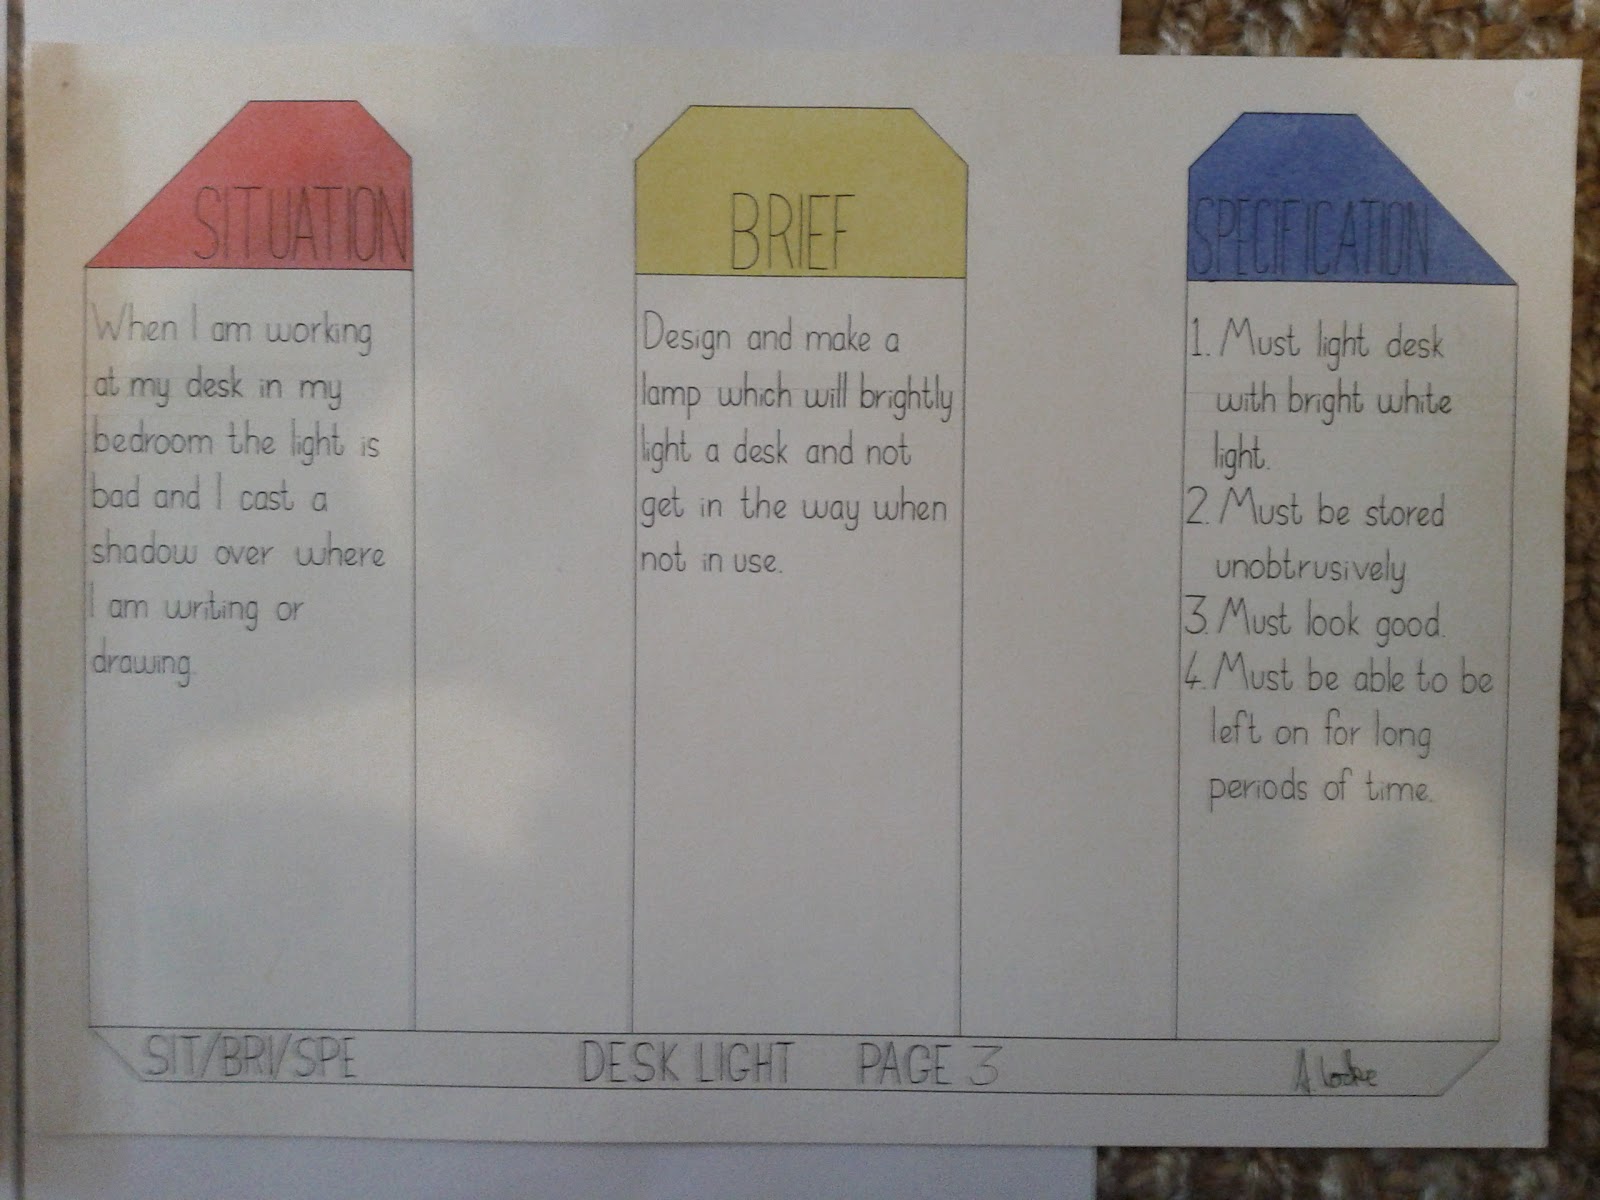 SITUATION
When I am working
at my desk in my
bedroom the light is
bad and I cast a
shadow over where
I am writing or
drawing.
BRIEF
Design and make a
lamp which will brightly
light a desk and not
get in the way when
not in use.
SPECIFICATION
1. Must light desk
with bright white
light.
2. Must be stored
unobtrusively
3. Must look good.
4. Must be able to be
left on for long
periods of time.
SIT/BRI/SPE DESK LIGHT PAGE 3 A Locke